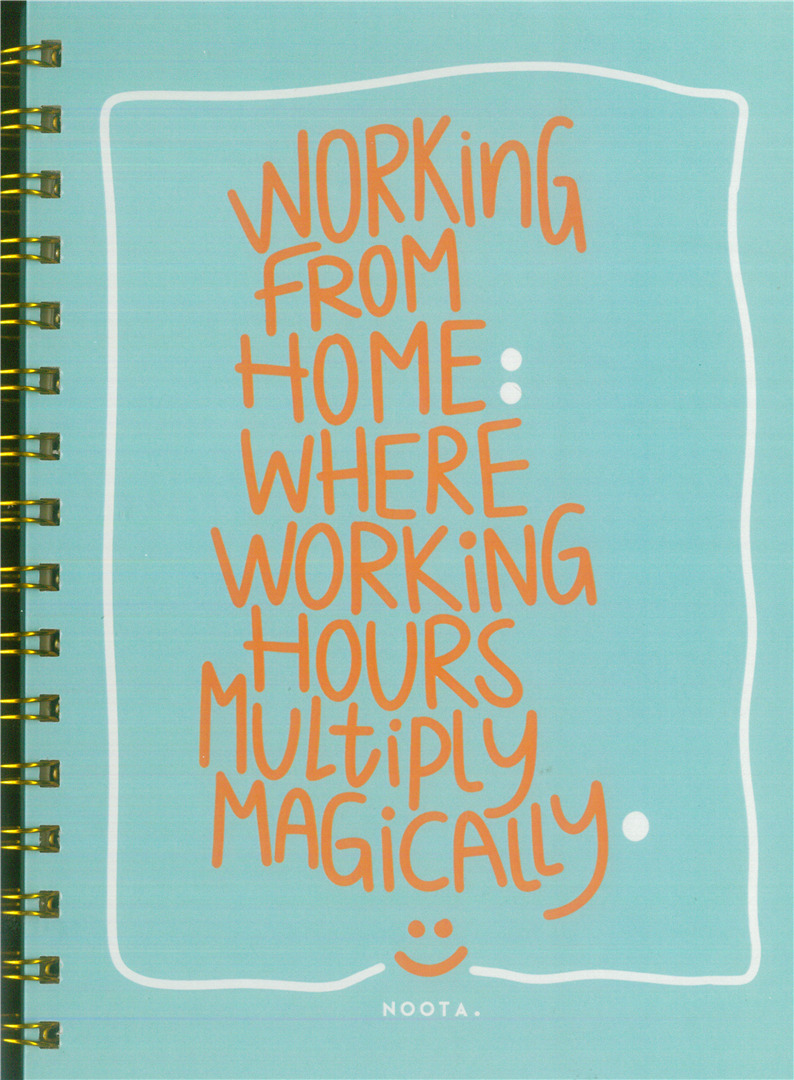 WORKinG
FROM
HOME:
WHERE
WORKiNG
HOURS
MULtiPLY
MAGiCALLY.
NOOTA.